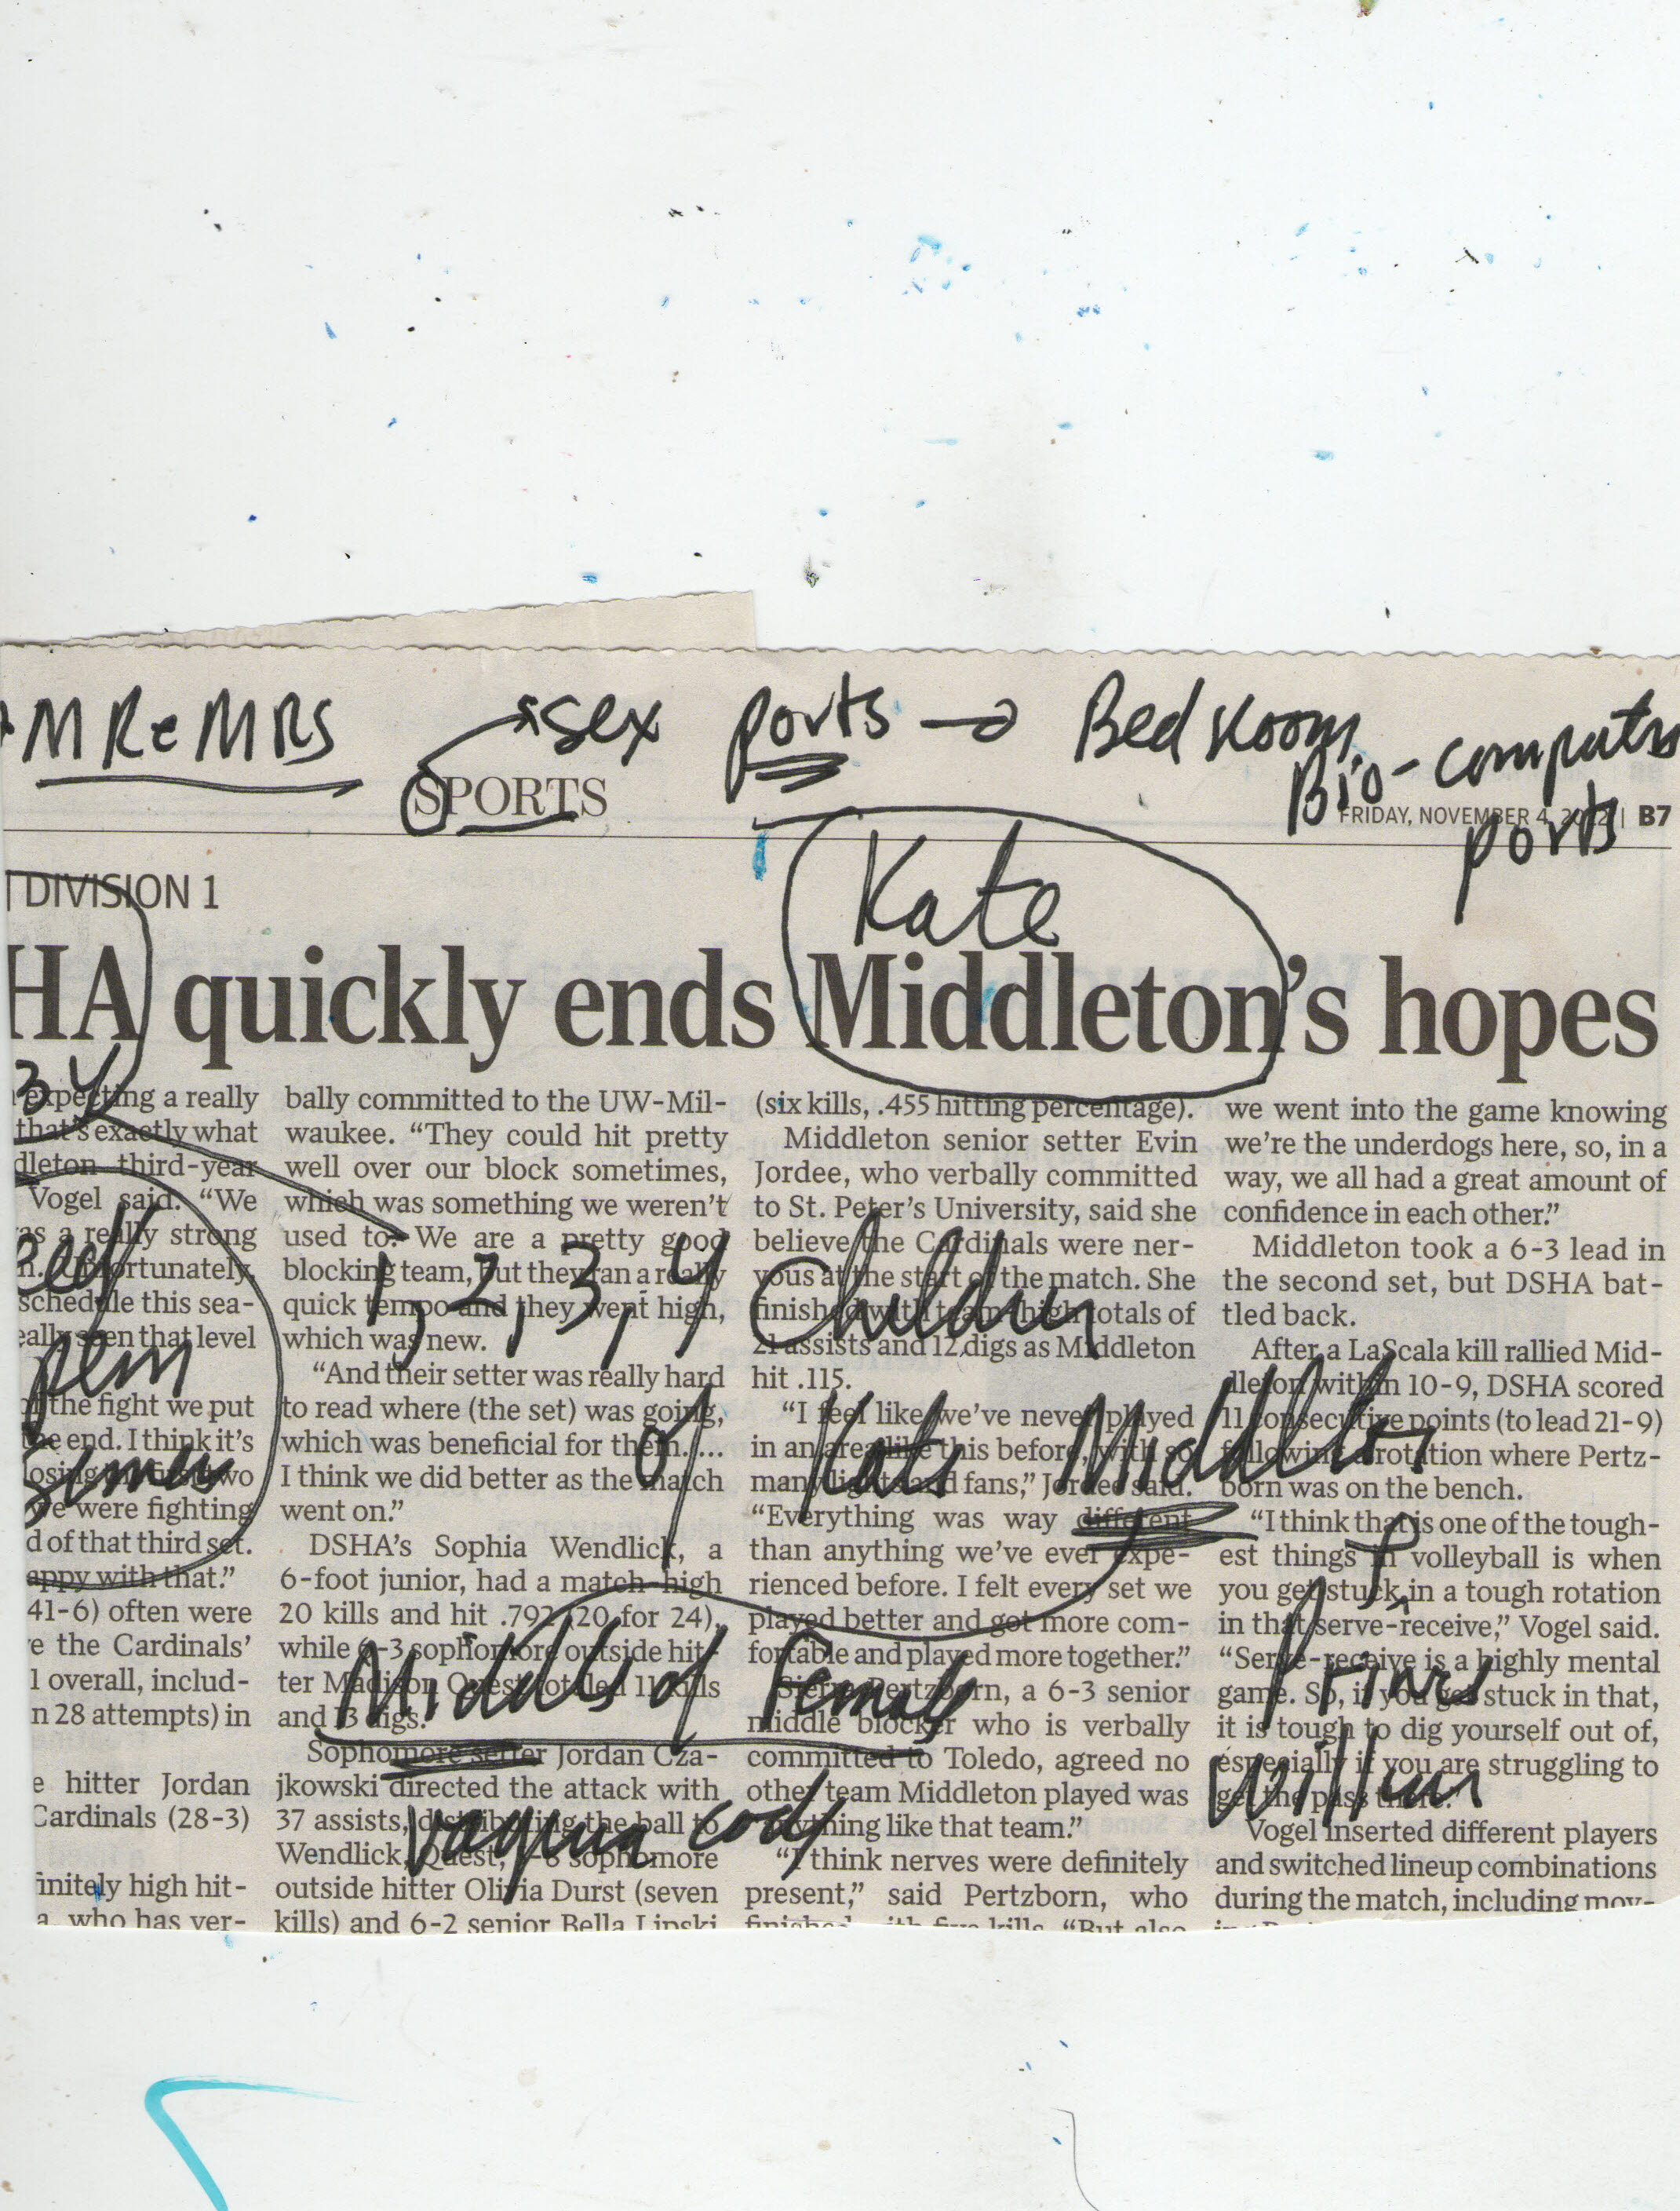 MR & MRS
sex ports → Bedroom
Bio-computer
ports
SPORTS
FRIDAY, NOVEMBER 4, 2022 | B7
| DIVISION 1
Kate
HA quickly ends Middleton's hopes
expecting a really
that's exactly what
dleton third-year
Vogel said. “We
as a really strong
n. Unfortunately,
schedule this sea-
eally seen that level
of the fight we put
the end. I think it's
osing the first two
we were fighting
d of that third set.
appy with that.”
41-6) often were
e the Cardinals'
1 overall, includ-
n 28 attempts) in
e hitter Jordan
Cardinals (28-3)
finitely high hit-
a, who has ver-
bally committed to the UW-Mil-
waukee. “They could hit pretty
well over our block sometimes,
which was something we weren't
used to. We are a pretty good
blocking team, but they ran a really
quick tempo and they went high,
which was new.
“And their setter was really hard
to read where (the set) was going,
which was beneficial for them. ...
I think we did better as the match
went on.”
DSHA's Sophia Wendlick, a
6-foot junior, had a match-high
20 kills and hit .792 (20 for 24),
while 6-3 sophomore outside hit-
ter Madison Quest totaled 11 kills
and 13 digs.
Sophomore setter Jordan Cza-
jkowski directed the attack with
37 assists, distributing the ball to
Wendlick, Quest, sophomore
outside hitter Olivia Durst (seven
kills) and 6-2 senior Bella Lipski
(six kills, .455 hitting percentage).
Middleton senior setter Evin
Jordee, who verbally committed
to St. Peter's University, said she
believe the Cardinals were ner-
vous at the start of the match. She
finished with team-high totals of
21 assists and 12 digs as Middleton
hit .115.
“I feel like we've never played
in an area like this before, with so
many lights and fans,” Jordee said.
“Everything was way different
than anything we've ever expe-
rienced before. I felt every set we
played better and got more com-
fortable and played more together.”
Sierra Pertzborn, a 6-3 senior
middle blocker who is verbally
committed to Toledo, agreed no
other team Middleton played was
anything like that team.”
“I think nerves were definitely
present,” said Pertzborn, who
finished with five kills. “But also
we went into the game knowing
we're the underdogs here, so, in a
way, we all had a great amount of
confidence in each other.”
Middleton took a 6-3 lead in
the second set, but DSHA bat-
tled back.
After a LaScala kill rallied Mid-
dleton within 10-9, DSHA scored
11 consecutive points (to lead 21-9)
following a rotation where Pertz-
born was on the bench.
“I think that is one of the tough-
est things in volleyball is when
you get stuck in a tough rotation
in that serve-receive,” Vogel said.
“Serve-receive is a highly mental
game. So, if you get stuck in that,
it is tough to dig yourself out of,
especially if you are struggling to
get the pass there.”
Vogel inserted different players
and switched lineup combinations
during the match, including mov-
34
1, 2, 3, 4 Children
of Kate Middleton
Middle of Female
vagina code
+
Prince
William